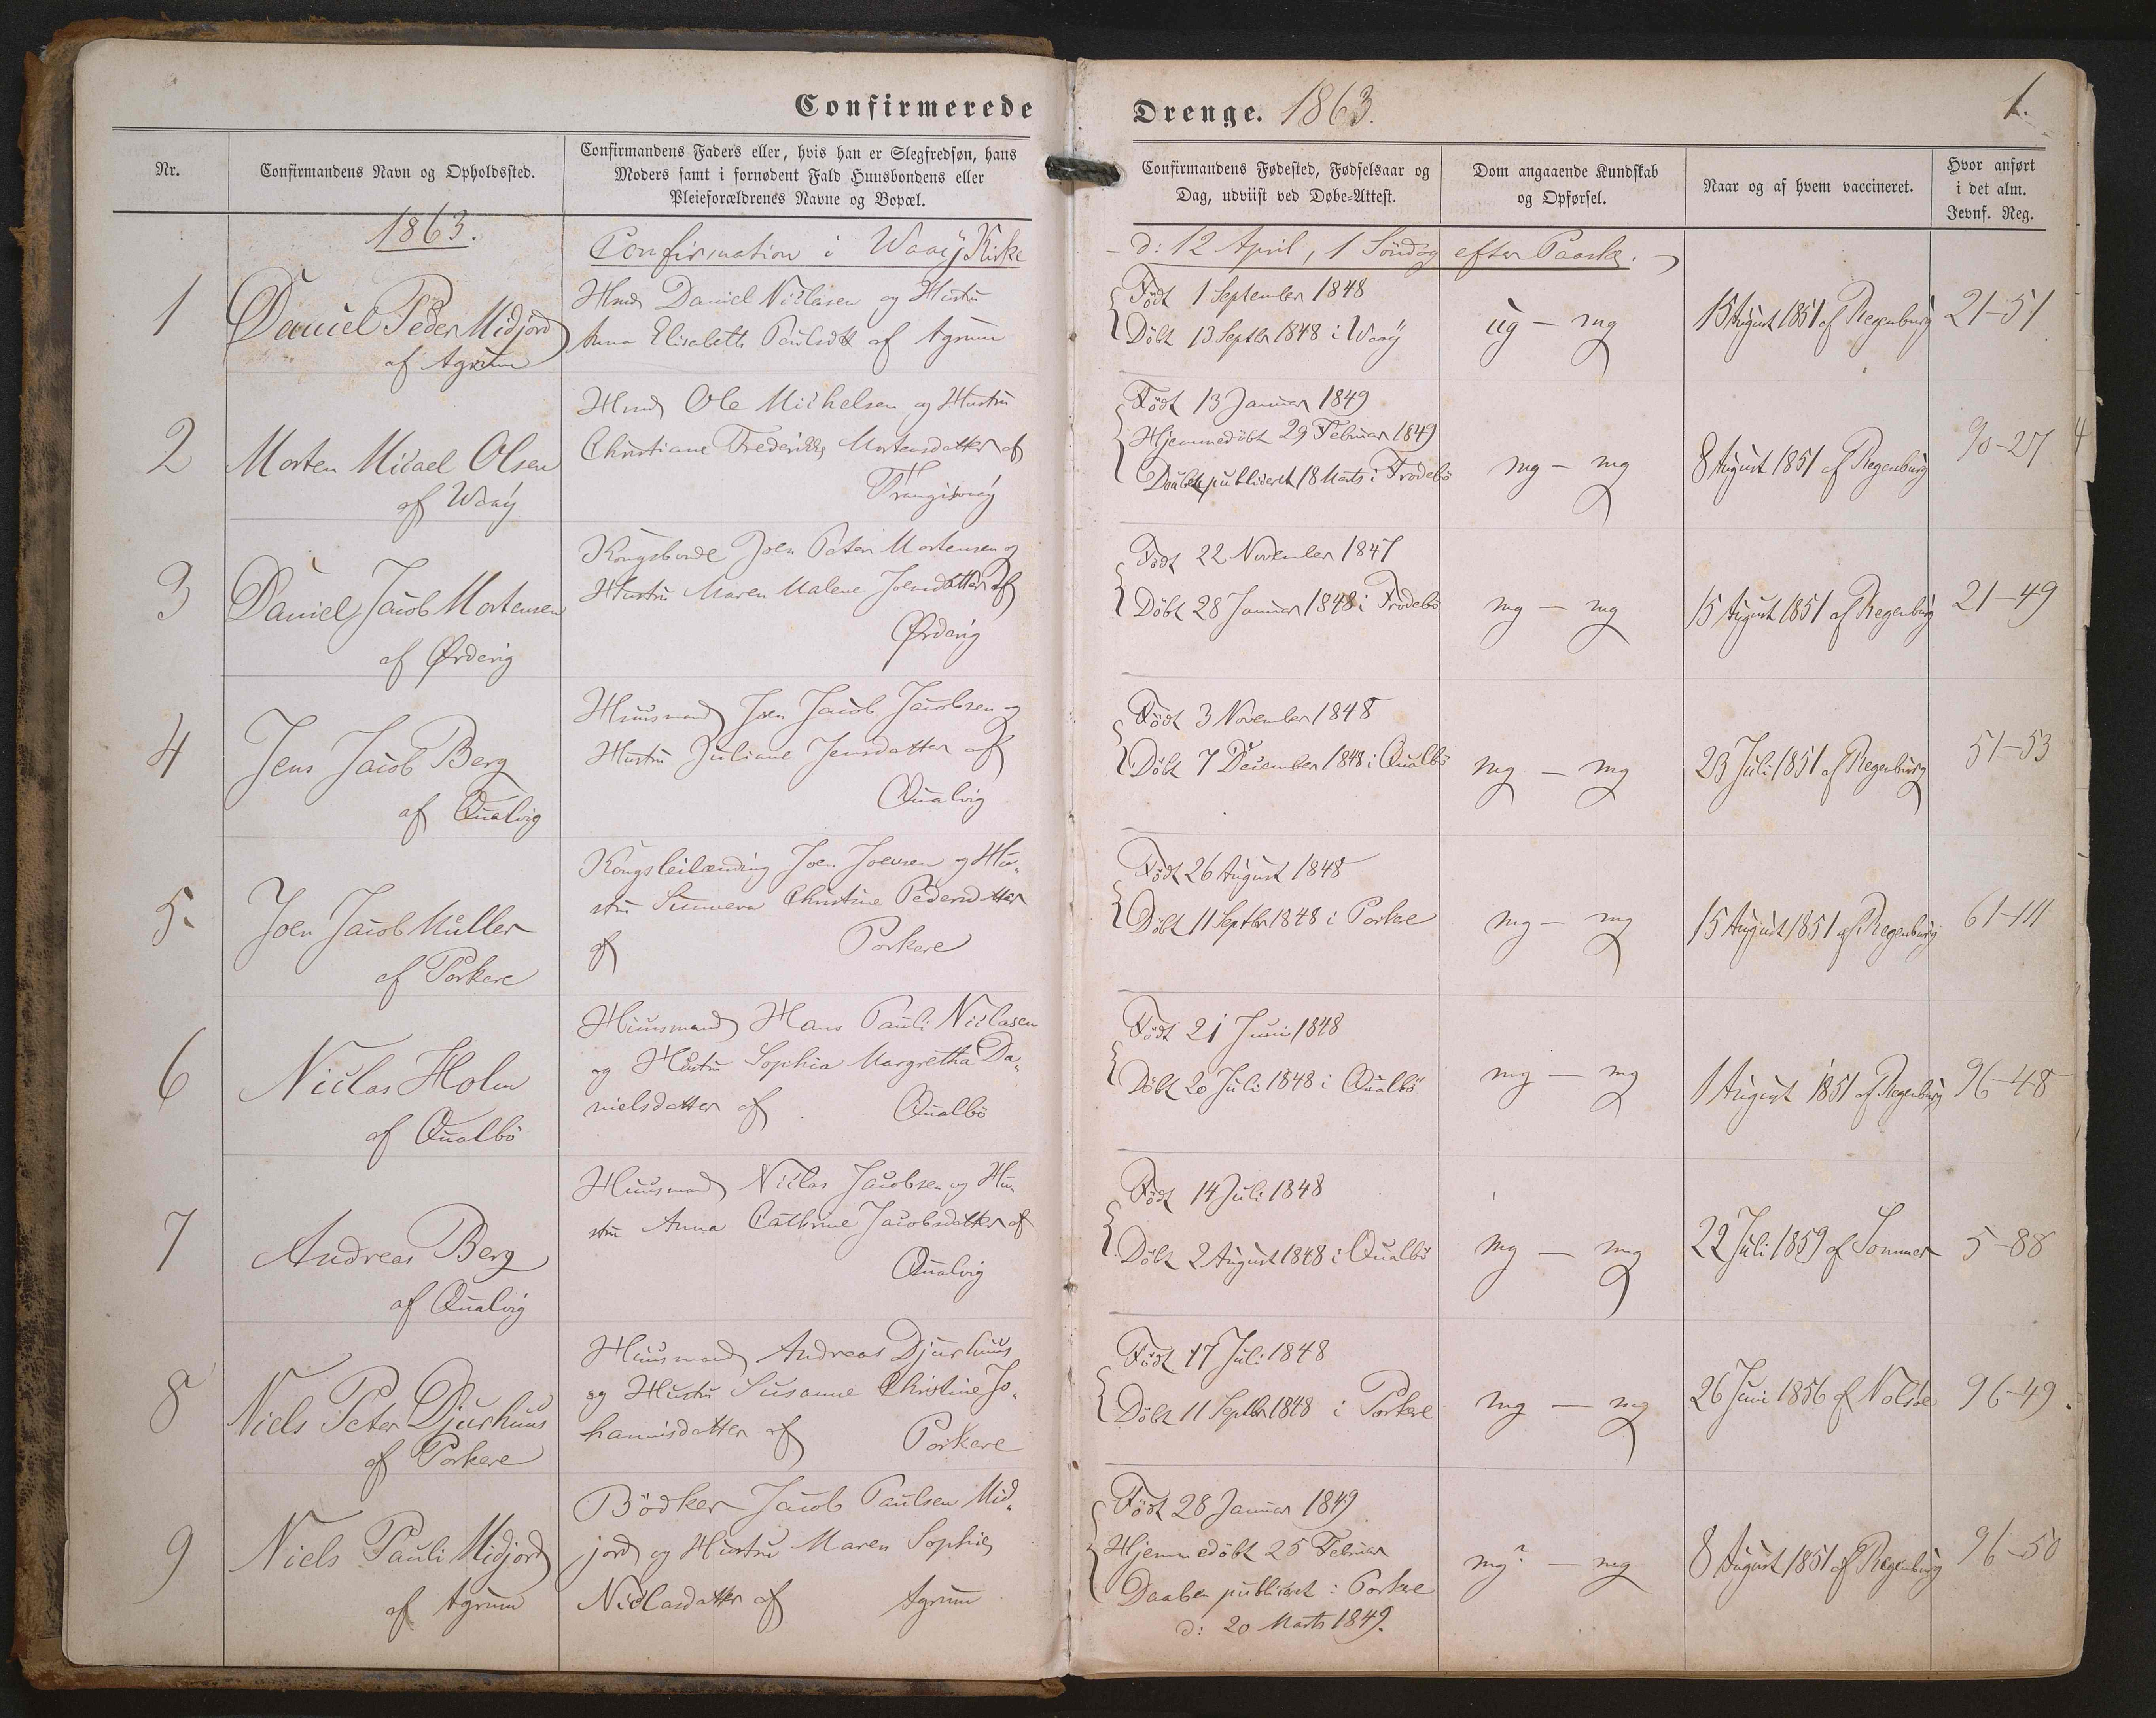 Confirmerede
Drenge. 1863.
1.
Nr.
Confirmandens Navn og Opholdssted.
Confirmandens Faders eller, hvis han er Slegfredsøn, hans
Moders samt i fornødent Fald Huusbondens eller
Pleieforældrenes Navne og Bopæl.
Confirmandens Fødested, Fødselsaar og
Dag, udviist ved Døbe-Attest.
Dom angaaende Kundskab
og Opførsel.
Naar og af hvem vaccineret.
Hvor anført
i det alm.
Jevnf. Reg.
1863.
Confirmation i Waaÿ Kirke
d: 12 April, 1 Söndag efter Paaske.
1
Daniel Peder Midjord
af Agrum
Hmd Daniel Niclasen og Hustru
Anna Elisabeth Poulsdtt af Agrum
Födt 1 September 1848
Döbt 13 Septbr 1848 i Waaÿ
ug — mg
15 August 1851 af Regenburg
21-51
2
Morten Micael Olsen
af Waaÿ
Hmd Ole Michelsen og Hustru
Christiane Frederikke Mortensdatter af
Trangisvaag
Födt 13 Januar 1849
Hjemmedöbt 29 Februar 1849
Daaben publiceret 18 Marts i Frodebö
mg — mg
8 August 1851 af Regenburg
90-27
4
3
Daniel Jacob Mortensen
af Ørdevig
Kongsbonde Joen Peter Mortensen og
Hustru Maren Malene Joensdatter af
Ørdevig
Födt 22 November 1847
Döbt 28 Januar 1848 i Frodebö
mg — mg
15 August 1851 af Regenburg
21-49
4
Jens Jacob Berg
af Qualvig
Huusmand Joen Jacob Jacobsen og
Hustru Juliane Jensdatter af
Qualvig
Födt 3 November 1848
Döbt 7 December 1848 i Qualbö
mg — mg
23 Juli 1851 af Regenburg
51-53
5.
Joen Jacob Müller
af Porkere
Kongsleilænding Joen Joensen og Hu-
stru Sunneva Christine Pedersdatter
af Porkere
Födt 26 August 1848
Döbt 11 Septbr 1848 i Porkere
mg — mg
15 August 1851 af Regenburg
61-111
6
Niclas Holm
af Qualbö
Huusmand Hans Pauli Niclasen
og Hustru Sophia Margretha Da-
nielsdatter af Qualbö
Födt 21 Juni 1848
Döbt 20 Juli 1848 i Qualbö
mg — mg
1 August 1851 af Regenburg
96-48
7
Andreas Berg
af Qualvig
Huusmand Niclas Jacobsen og Hu-
stru Anna Cathrine Jacobsdatter af
Qualvig
Födt 14 Juli 1848
Döbt 2 August 1848 i Qualbö
mg — mg
22 Juli 1859 af Sommer
5-88
8
Niels Peter Djurhuus
af Porkere
Huusmand Andreas Djurhuus
og Hustru Susanne Christine Jo-
hannisdatter af Porkere
Födt 17 Juli 1848
Döbt 11 Septbr 1848 i Porkere
mg — mg
26 Juni 1856 af Nolsöe
96-49.
9
Niels Pauli Midjord
af Agrum
Bödker Jacob Paulsen Mid-
jord og Hustru Maren Sophie
Niclasdatter af Agrum
Födt 28 Januar 1849
Hjemmedöbt 25 Februar
Daaben publiceret i Porkere
d: 20 Marts 1849.
mg? — mg
8 August 1851 af Regenburg
96-50